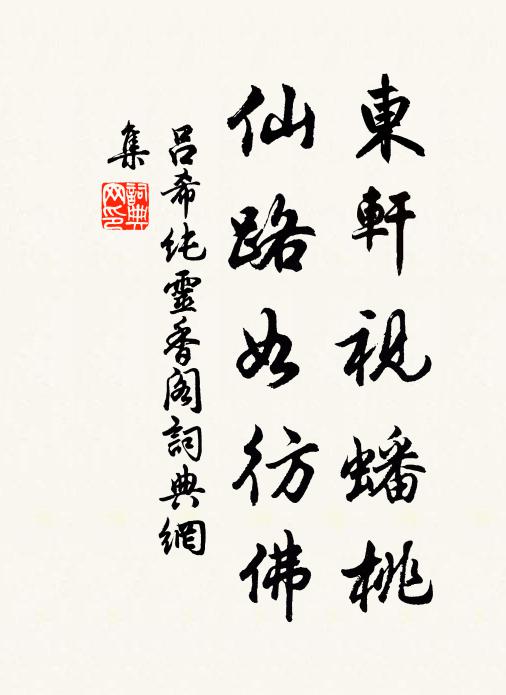 東軒視蟠桃
仙路如彷彿
呂希純靈香閣詞典網
集
詞典
网印